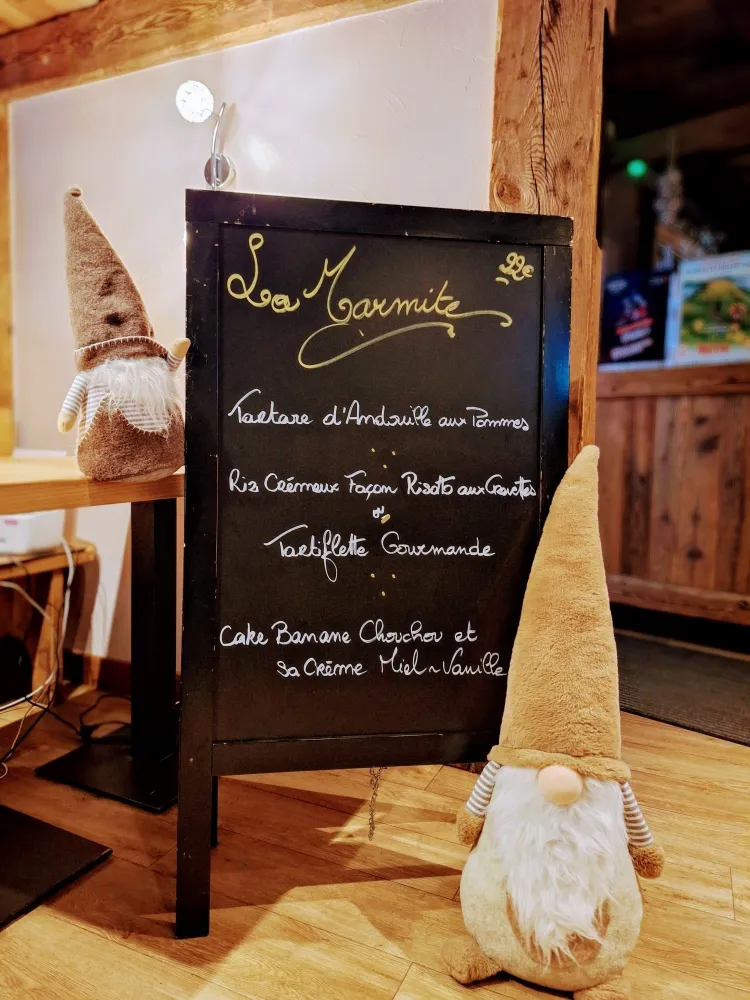 La Marmite 22€
Tartare d'Andouille aux Pommes
Riz Crémeux Façon Risotto aux Crevettes
ou
Tartiflette Gourmande
Cake Banane Chouchou et
sa Crème Miel ~ Vanille